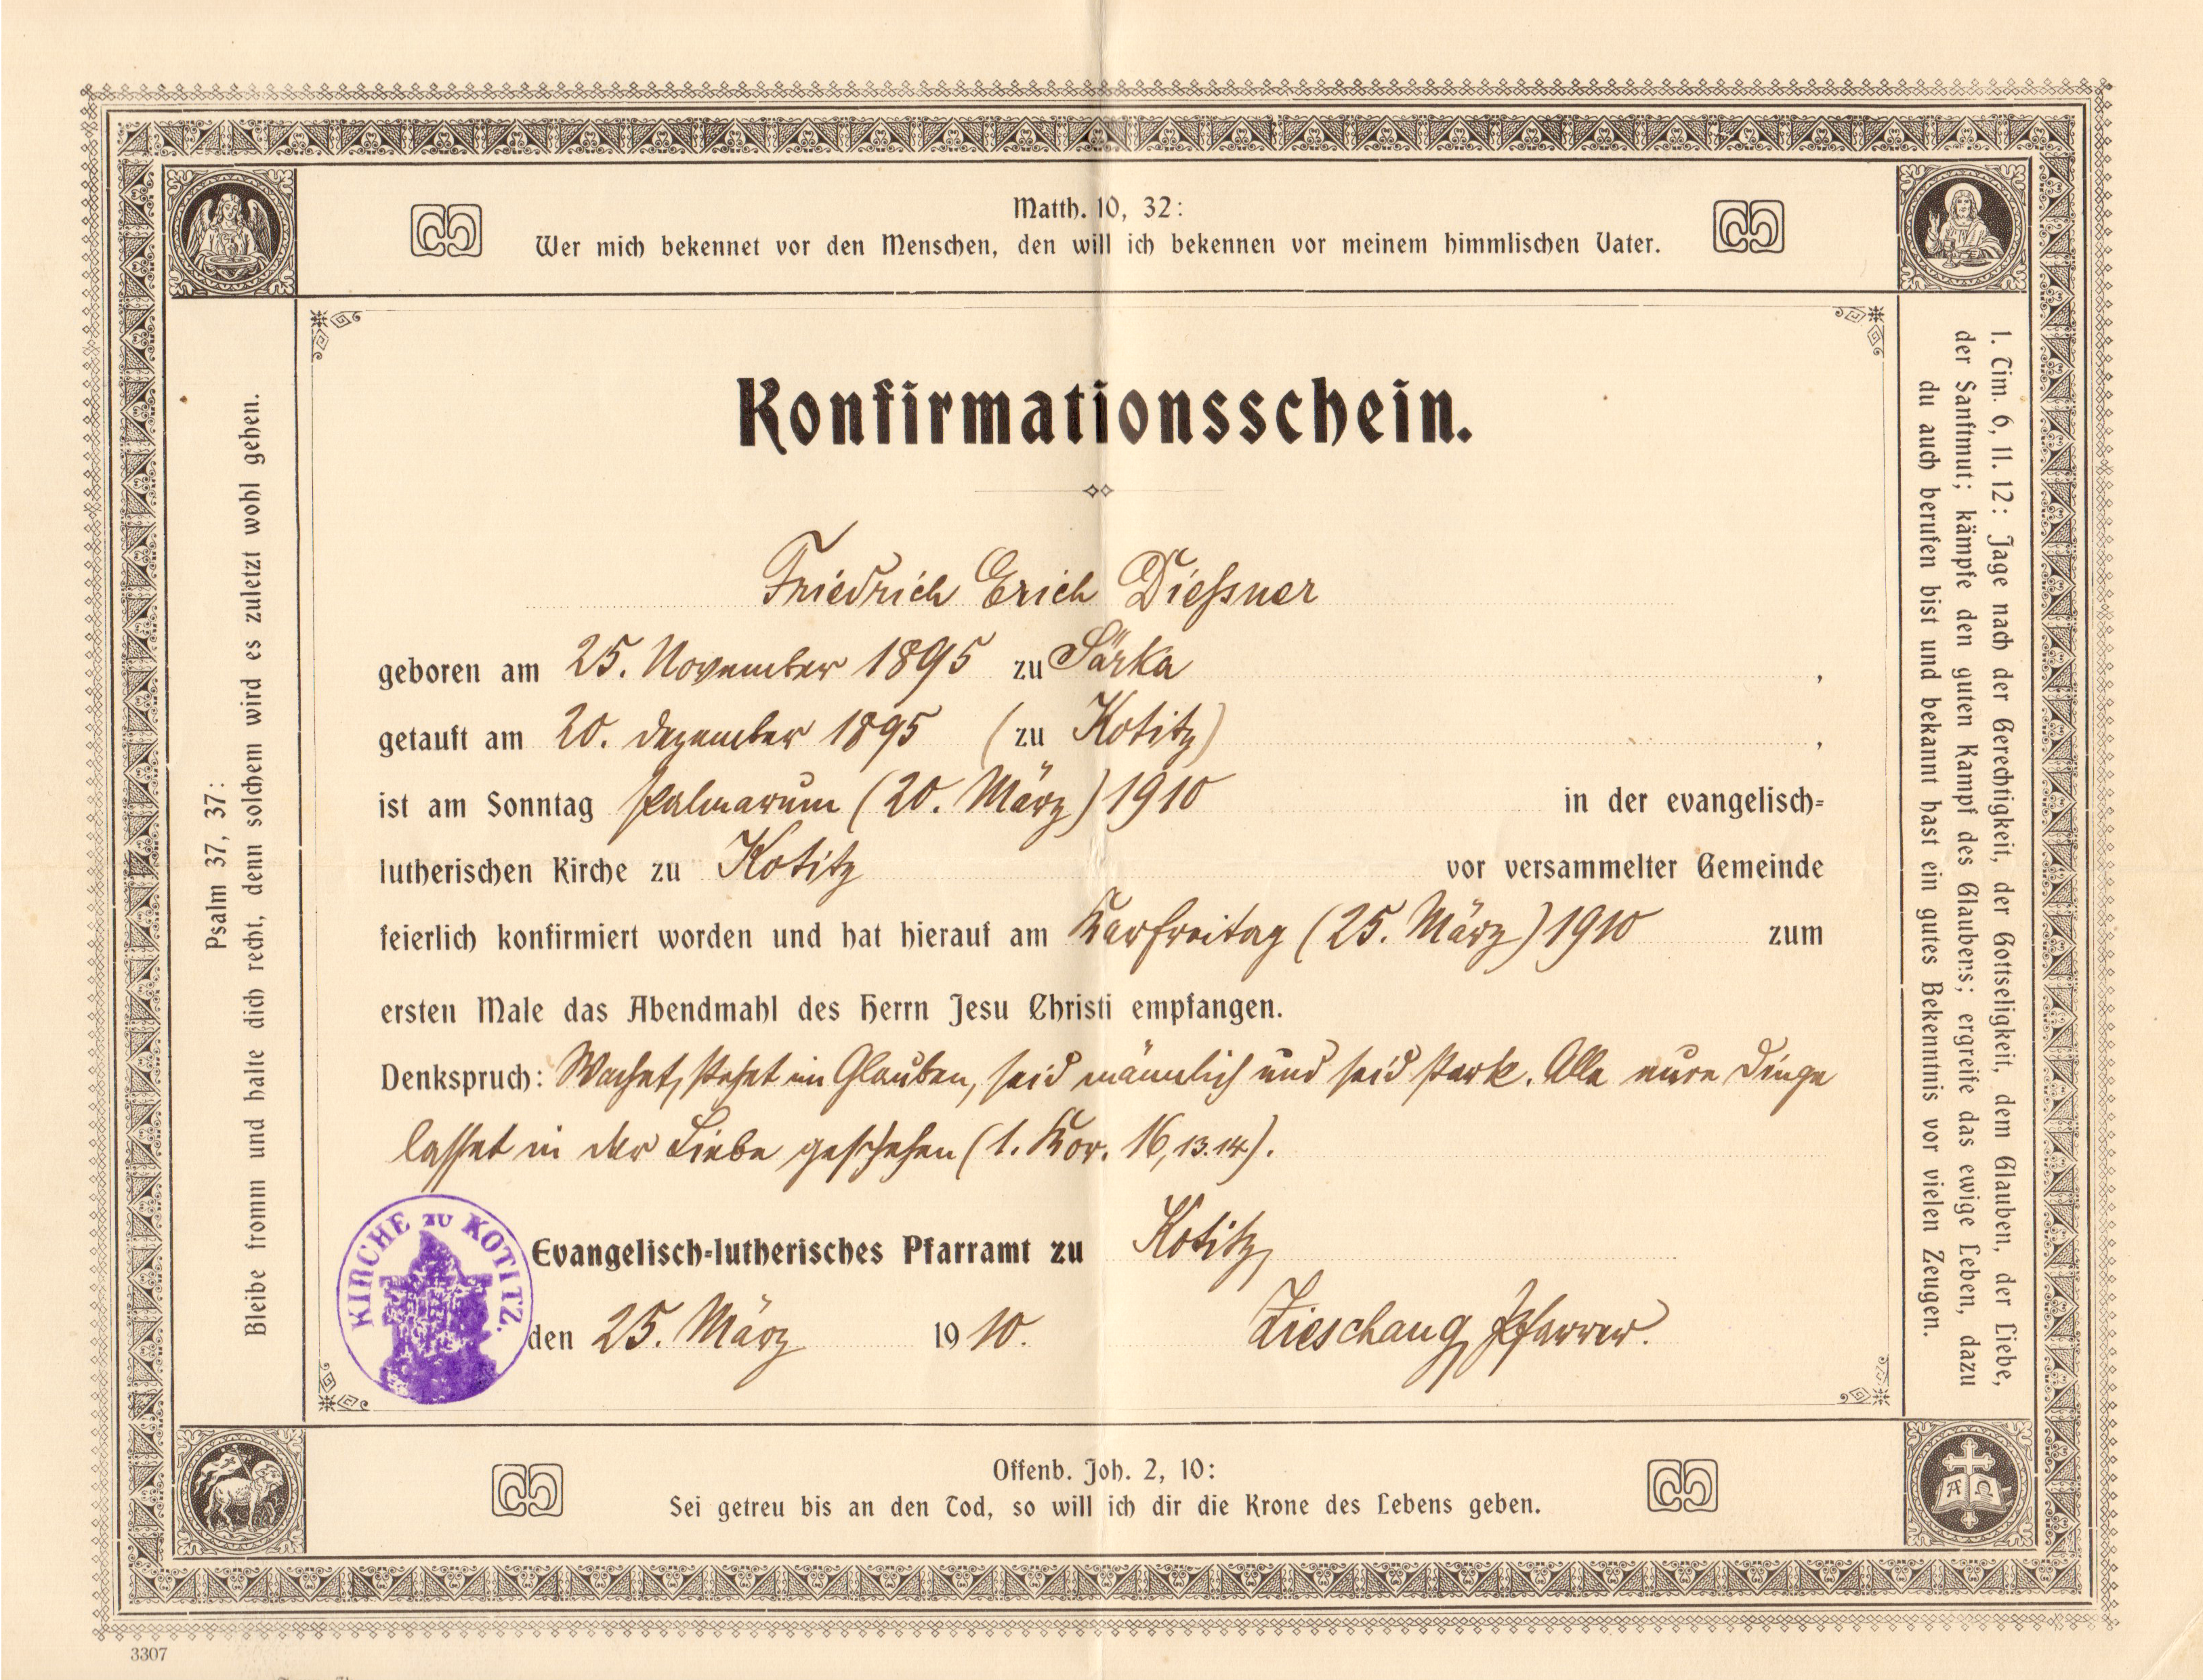 Matth. 10, 32:
Wer mich bekennet vor den Menschen, den will ich bekennen vor meinem himmlischen Vater.
Psalm 37, 37:
Bleibe fromm und halte dich recht, denn solchem wird es zuletzt wohl gehen.
Konfirmationsschein.
Friedrich Erich Dießner
geboren am 25. November 1895 zu Särka,
getauft am 20. Dezember 1895 (zu Kotitz),
ist am Sonntag Palmarum (20. März) 1910 in der evangelisch-
lutherischen Kirche zu Kotitz vor versammelter Gemeinde
feierlich konfirmiert worden und hat hierauf am Karfreitag (25. März) 1910 zum
ersten Male das Abendmahl des Herrn Jesu Christi empfangen.
Denkspruch: Wachet, stehet im Glauben, seid männlich und seid stark. Alle eure Dinge
lasset in der Liebe geschehen (1. Kor. 16, 13.14).
KIRCHE ZU KOTITZ.
Evangelisch-lutherisches Pfarramt zu Kotitz,
den 25. März 1910.
Zieschang, Pfarrer.
1. Tim. 6, 11. 12: Jage nach der Gerechtigkeit, der Gottseligkeit, dem Glauben, der Liebe,
der Sanftmut; kämpfe den guten Kampf des Glaubens; ergreife das ewige Leben, dazu
du auch berufen bist und bekannt hast ein gutes Bekenntnis vor vielen Zeugen.
A Ω
Offenb. Joh. 2, 10:
Sei getreu bis an den Tod, so will ich dir die Krone des Lebens geben.
3307